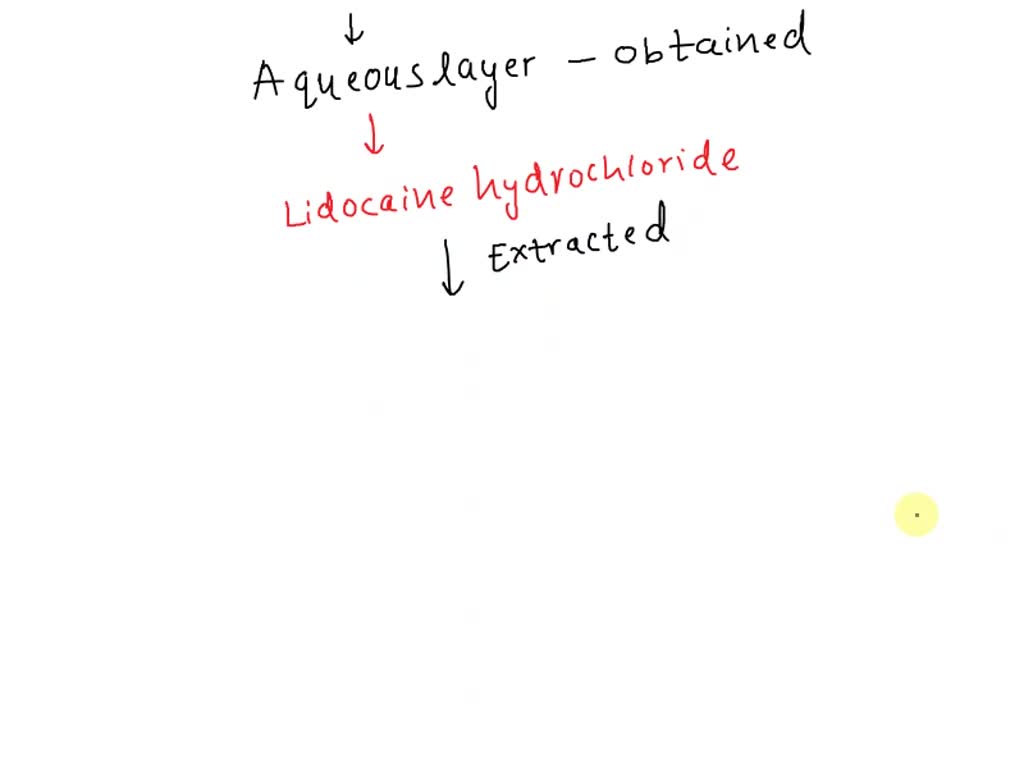 ↓
Aqueous layer – obtained
↓
Lidocaine hydrochloride
↓ Extracted